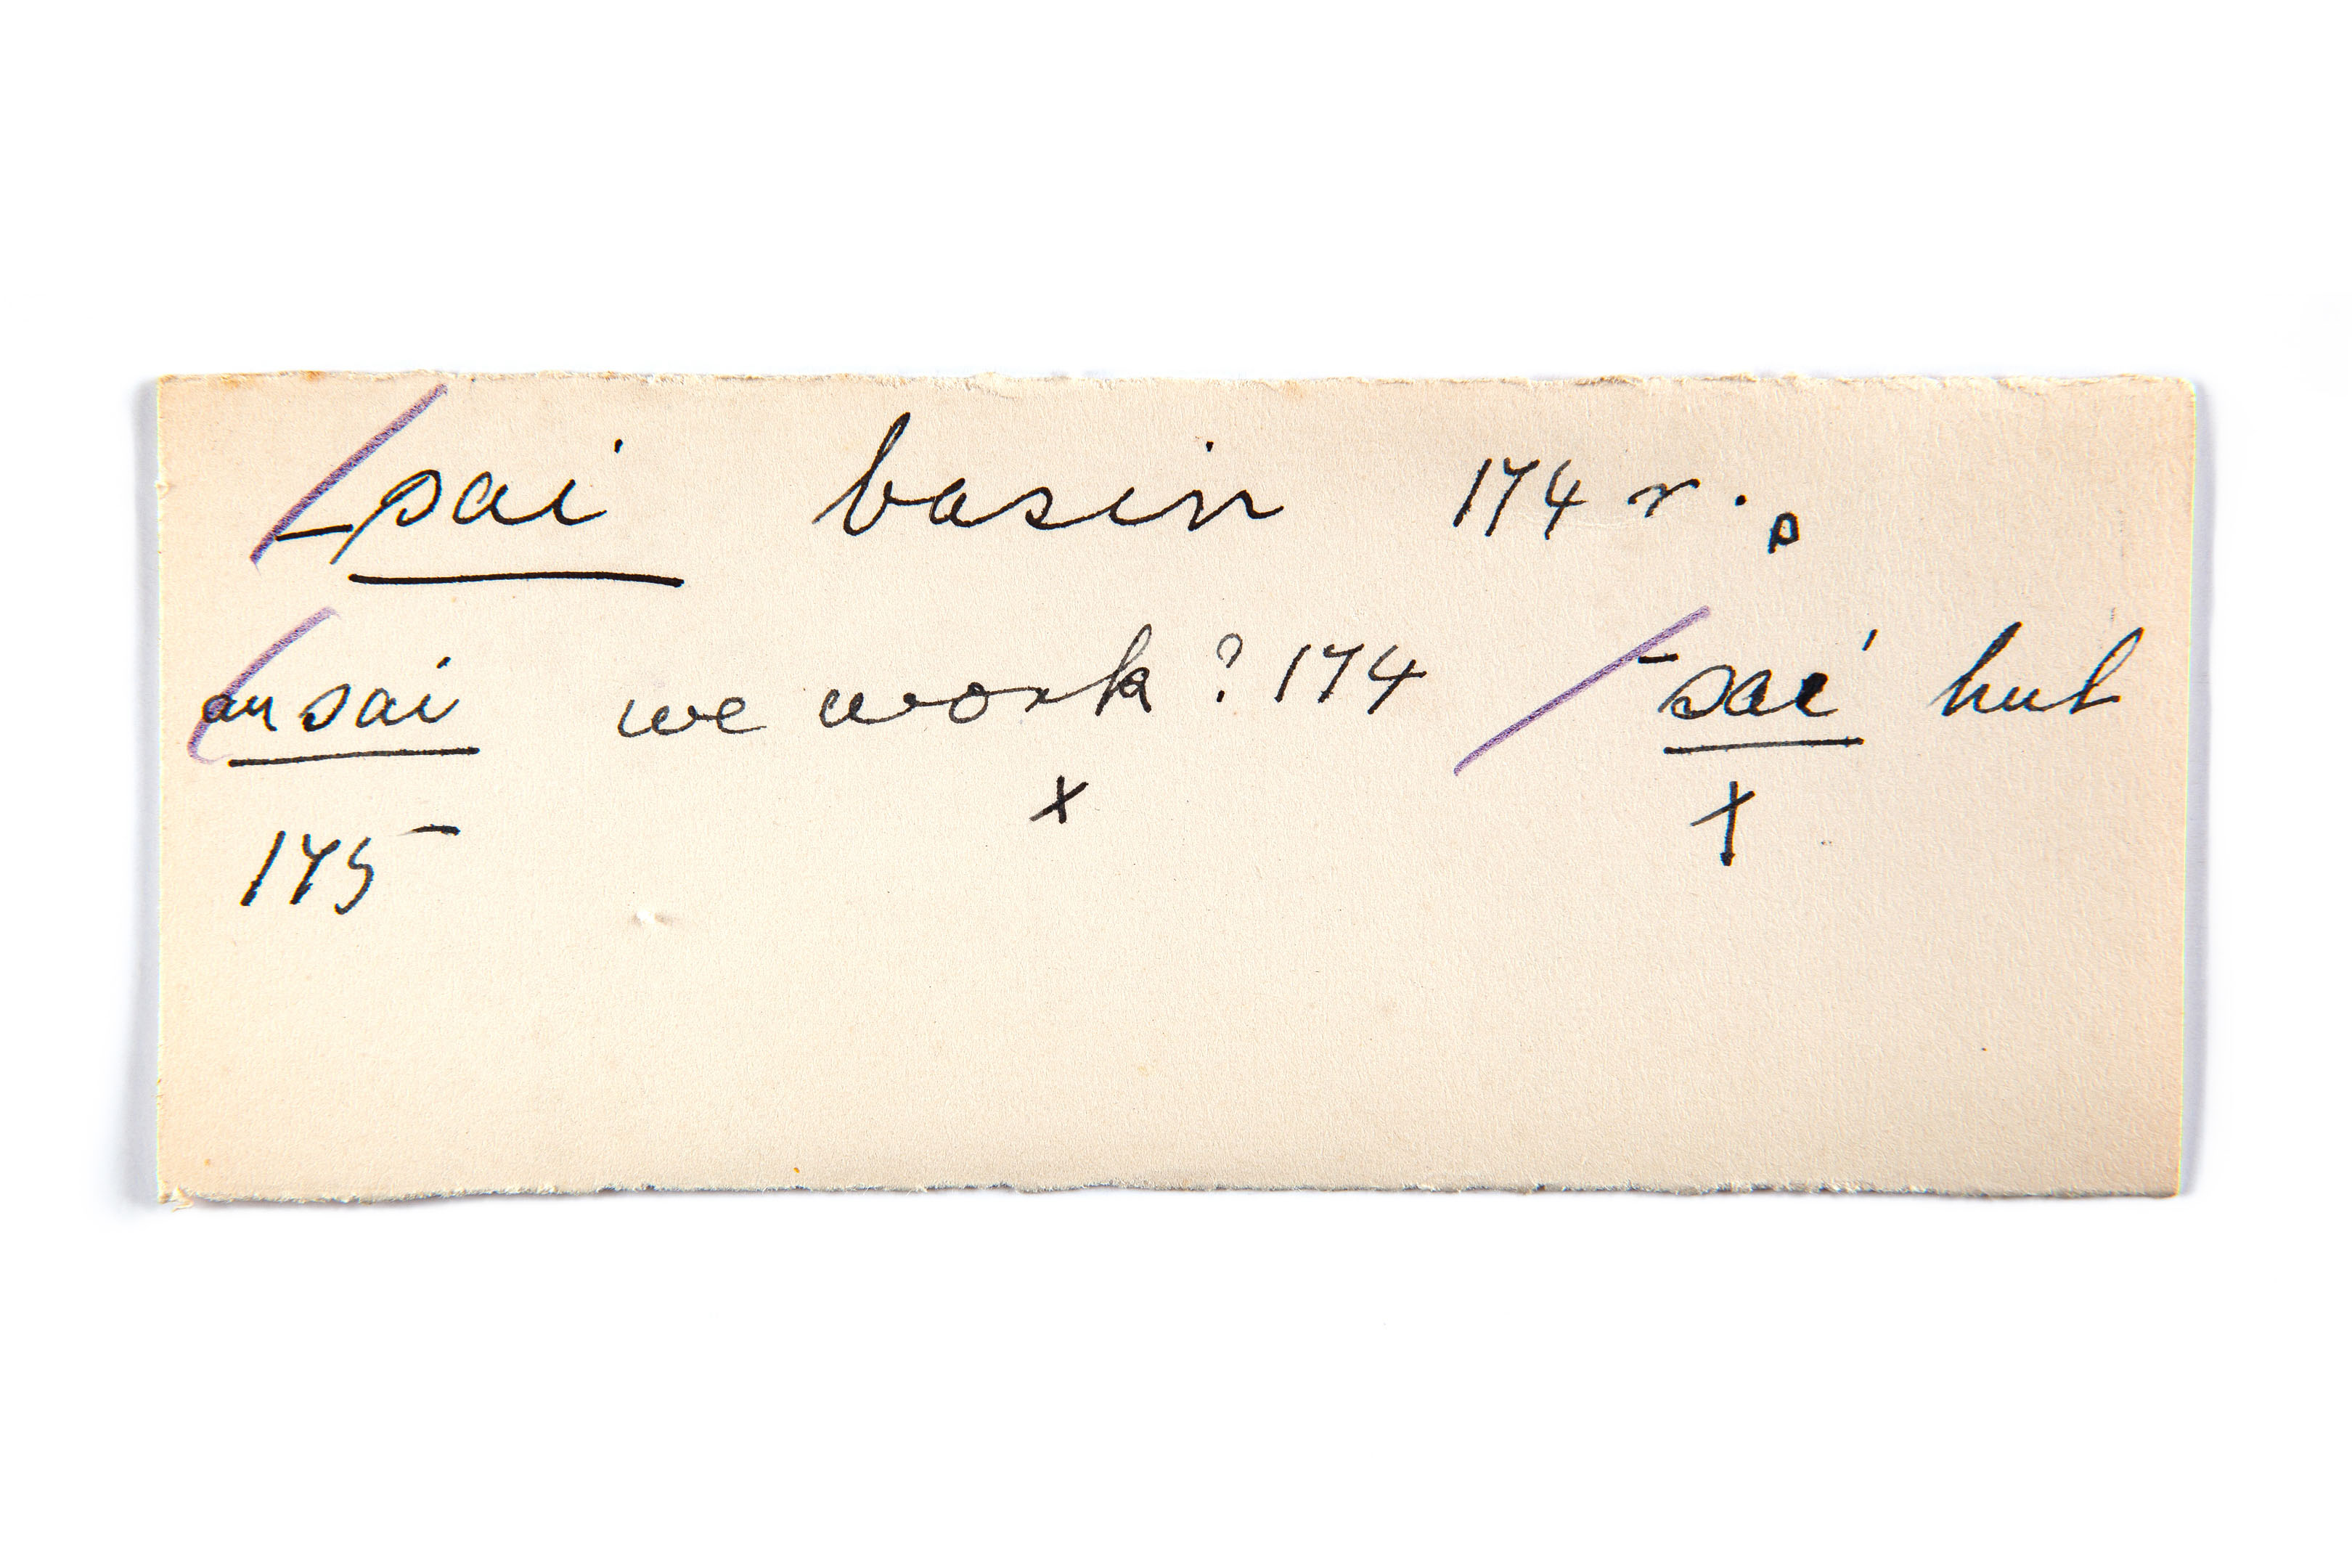 -sai basin 174 r. p
an sai we work? 174 - sai' hut
x x
175